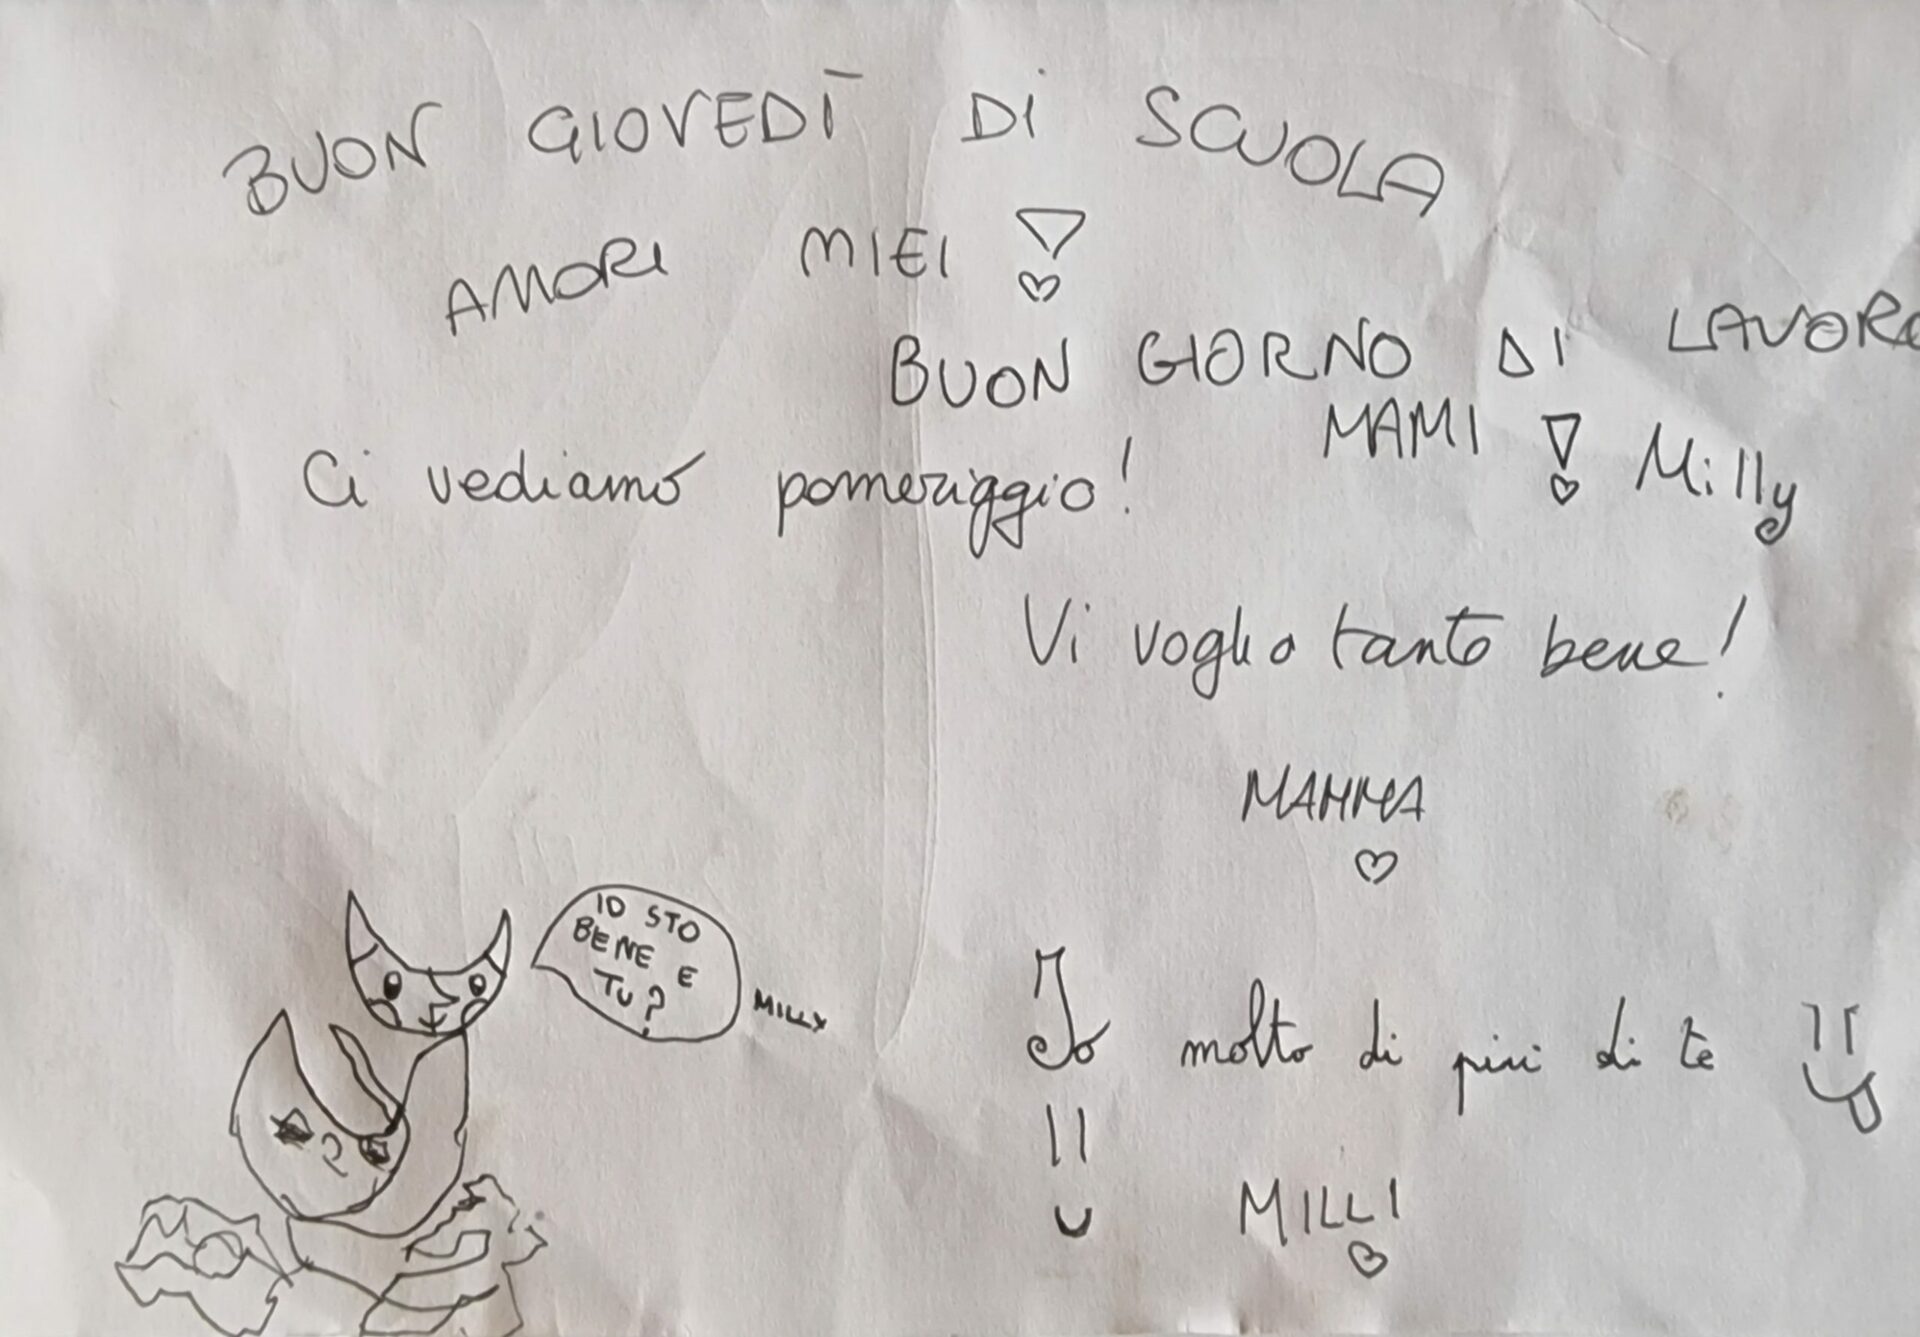 BUON GIOVEDÌ DI SCUOLA
AMORI MIEI !
BUON GIORNO DI LAVORO
MAMI ! Milly
Ci vediamo pomeriggio!
Vi voglio tanto bene!
MAMMA
IO STO
BENE E
TU?
MILLY
Io molto di più di te
MILLI